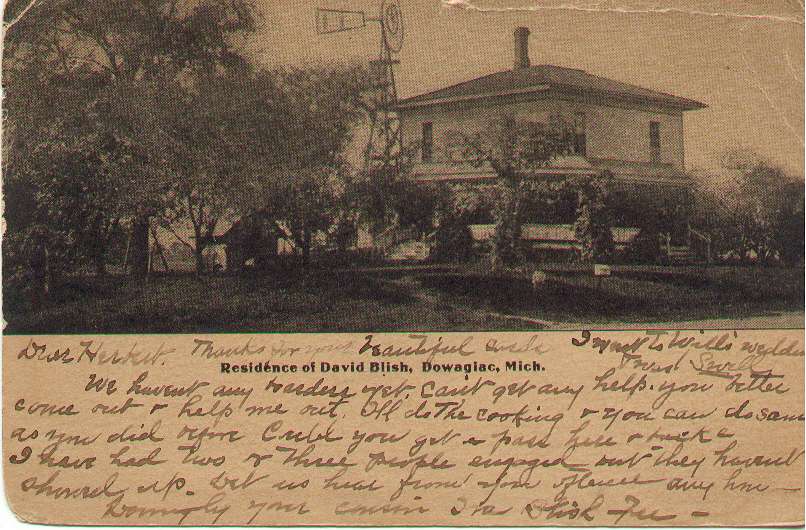 Dear Herbert. Thanks for your beautiful cards I went to Will's wedding
Residence of David Blish, Dowagiac, Mich.
was Swell
We havent any boarders yet. Can't get any help. you better
come out & help me out. Ill do the cooking & you can do same
as you did before Could you get a pass here & back
I have had two & three people engaged but they havent
showed up. Let us hear from you oftener any how
your cousin Ina Blish